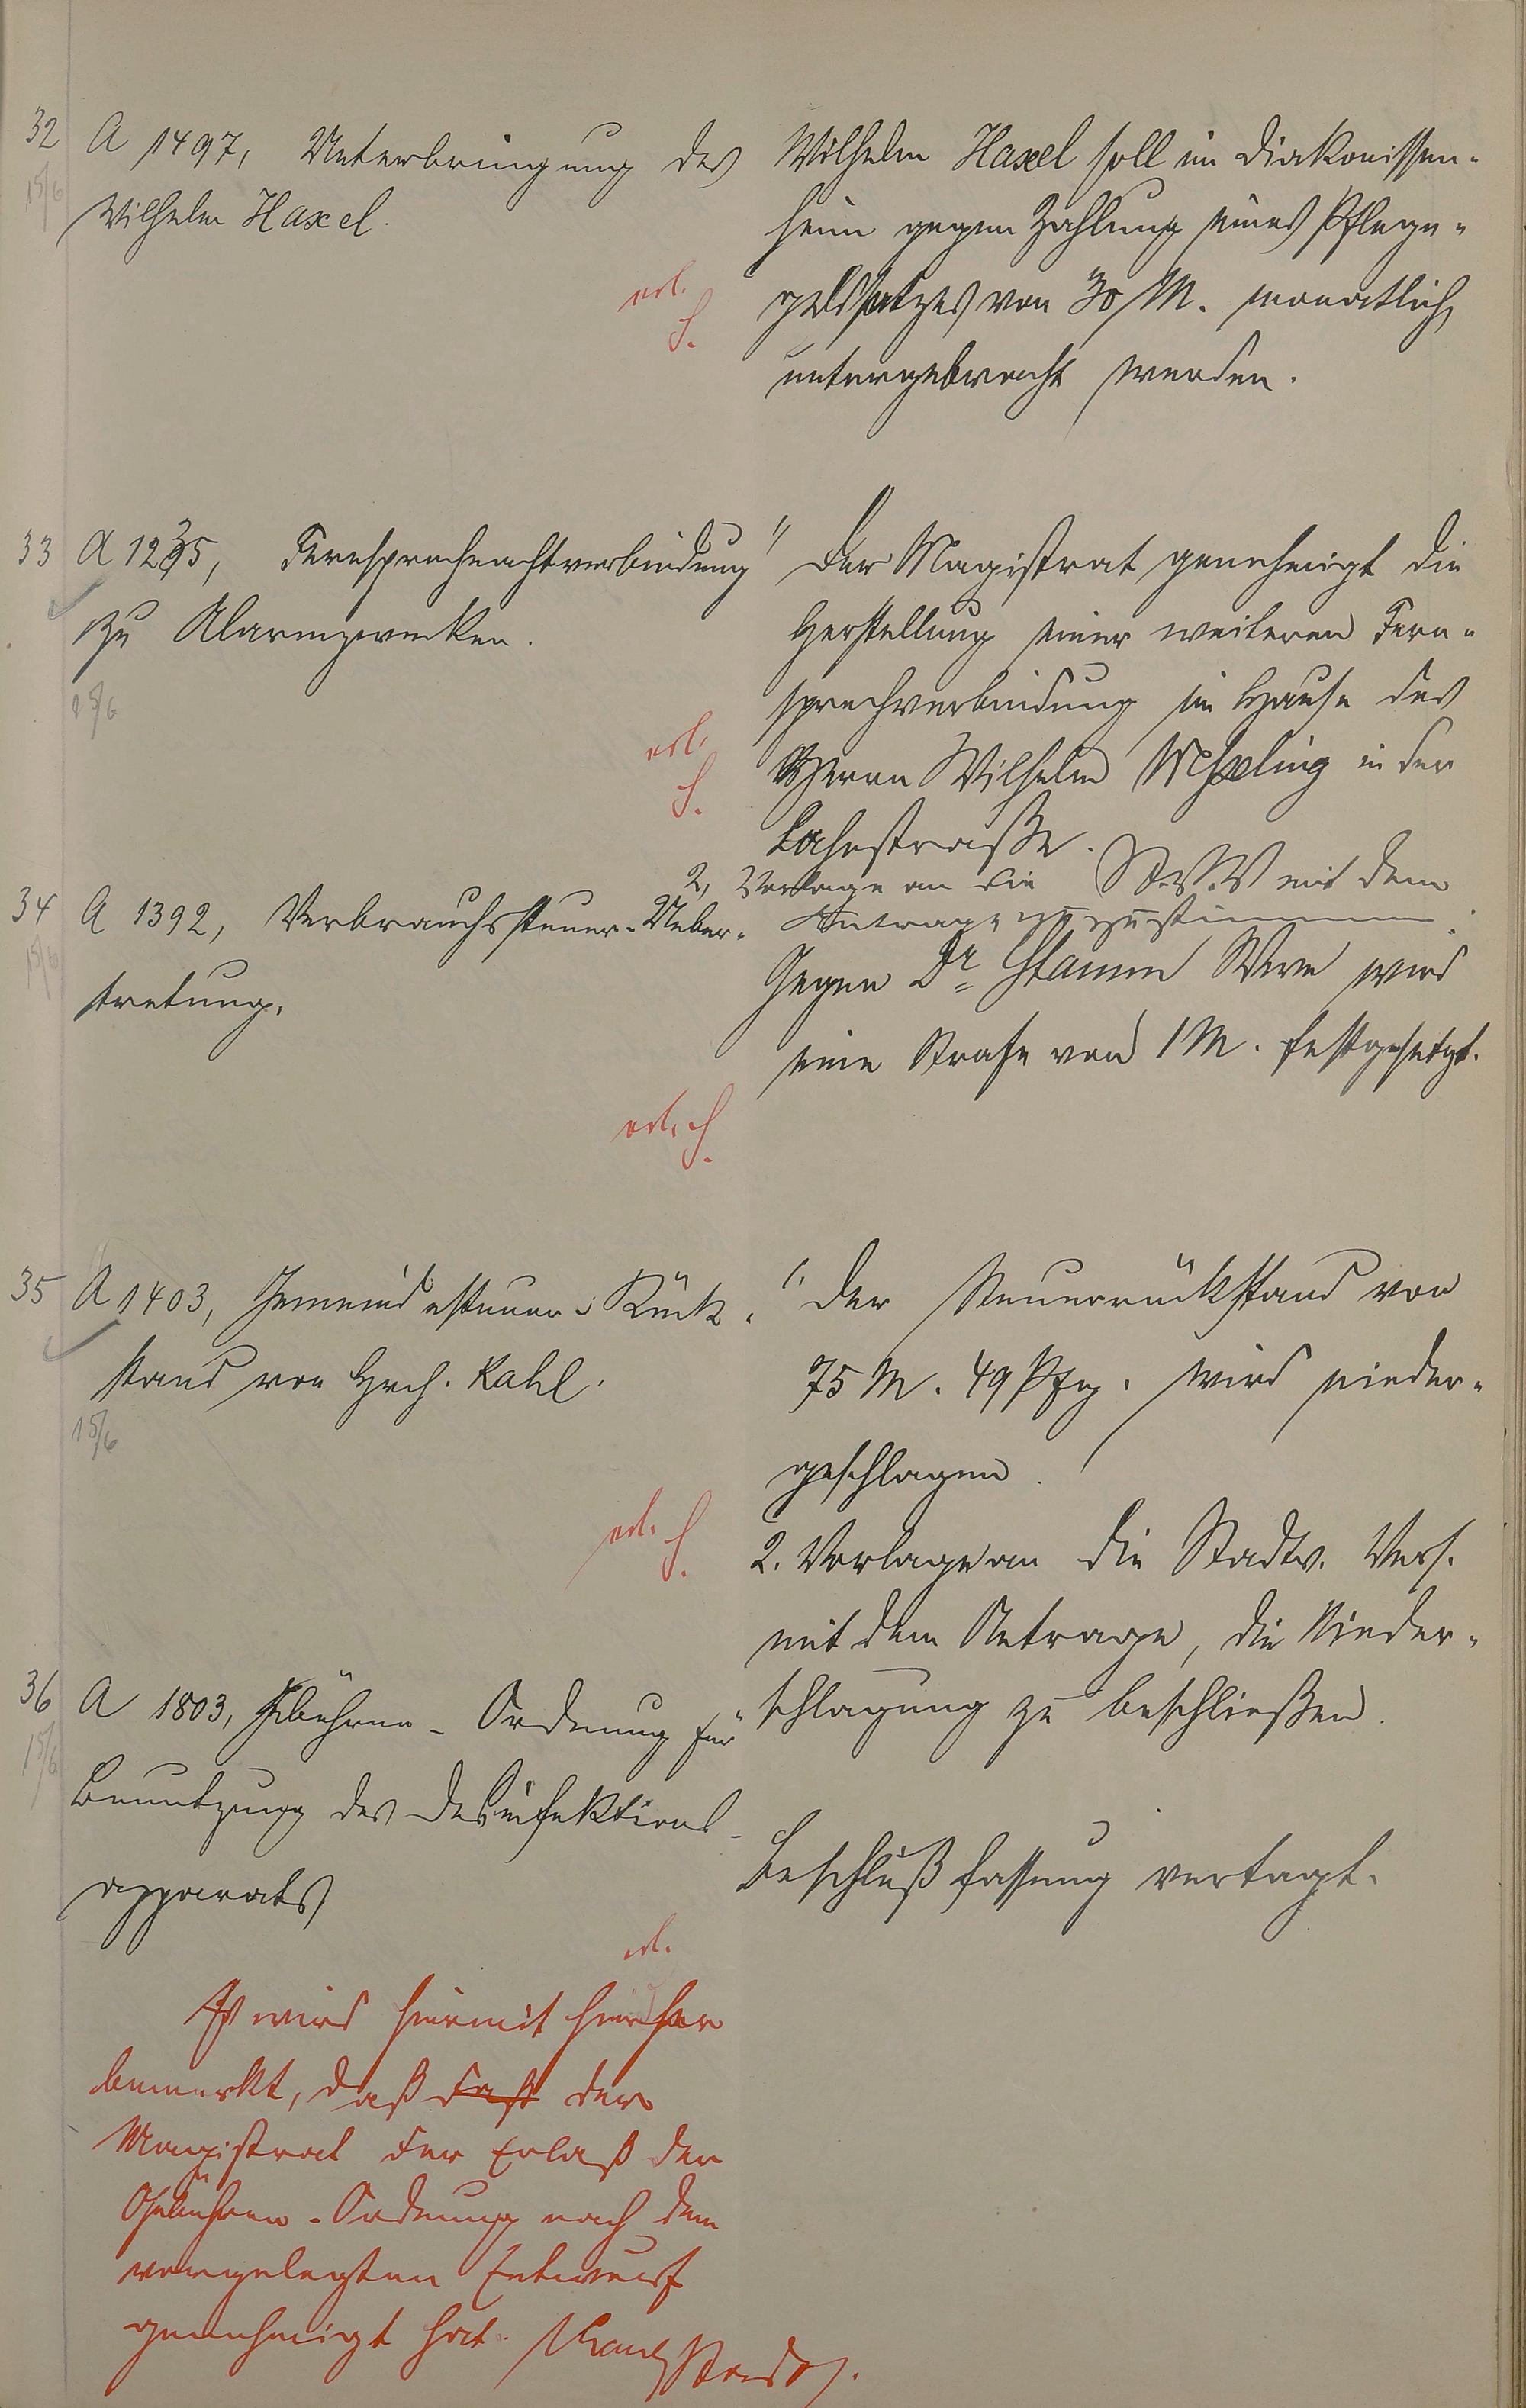 32 A 1497, Unterbringung des
Wilhelm Haxel.
15/6
erl.
Wilhelm Haxel soll im Diakonissen-
heim gegen Zahlung eines Pflege-
geldsatzes von 30 M. monatlich
untergebracht werden.
33 A 1235, Fernsprechnachtverbindung
zu Alarmzwecken.
15/6
erl.
1, Der Magistrat genehmigt die
Herstellung einer weiteren Fern-
sprechverbindung im Hause des
Herrn Wilhelm in der
Lahnstraße.
2, Vorlage an die St.V.V mit dem
Antrage zuzustimmen.
34 A 1392, Verbrauchssteuer-Ueber-
tretung.
15/6
erl.
Gegen Dr. Stamm Wwe wird
eine Strafe von 1 M. festgesetzt.
35 A 1403, Gemeindesteuer-Rück-
stand von Hrch. Kahl.
15/6
erl.
1. Der Steuerrückstand von
75 M. 49 Pfg. wird nieder-
geschlagen.
2. Vorlage an die Stadtv. Vers.
mit dem Antrage, die Nieder-
schlagung zu beschließen.
36 A 1803, Gebühren-Ordnung für
Benutzung des Desinfektions-
apparats
15/6
Beschlußfassung vertagt.
erl.
Es wird hiermit hierher
bemerkt, daß der
Magistrat den Erlaß der
Gebühren-Ordnung nach dem
vorgelegten Entwurf
genehmigt hat.